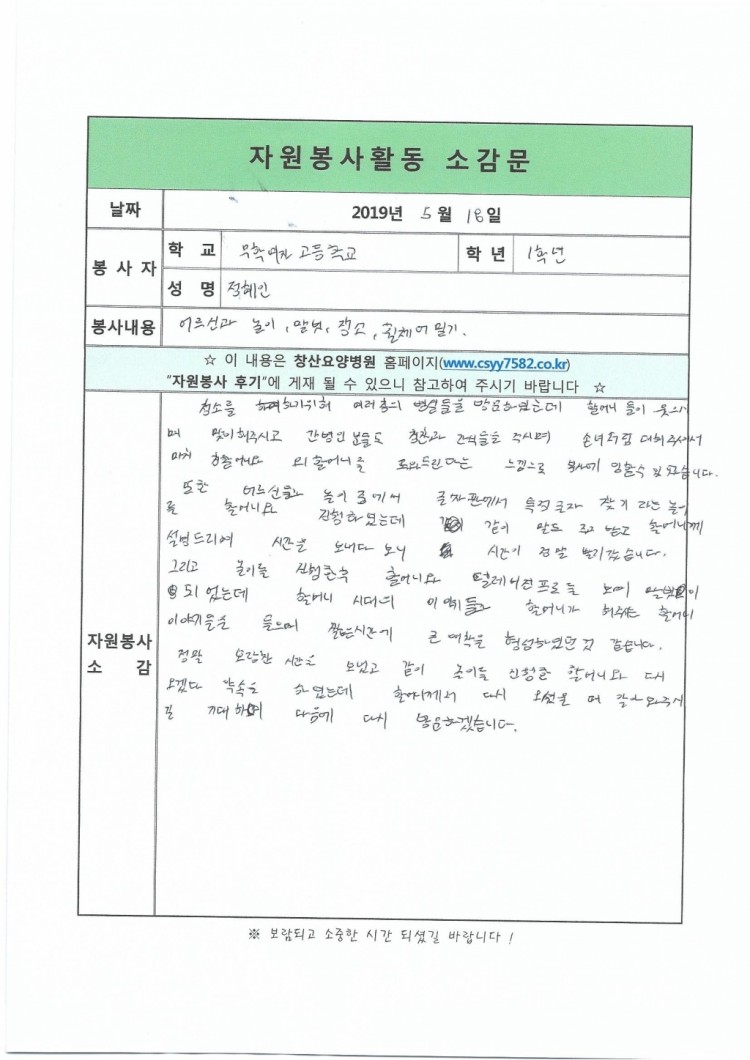 자원봉사활동 소감문
날짜
2019년 5월 18일
봉사자
학 교
무학여자 고등학교
학 년
1학년
성 명
혜인
봉사내용
어르신과 놀이, 말벗, 청소, 휠체어 밀기.
☆ 이 내용은 창산요양병원 홈페이지(www.csyy7582.co.kr)
"자원봉사 후기"에 게재 될 수 있으니 참고하여 주시기 바랍니다 ☆
자원봉사
소 감
청소를 하기위해 여러층의 병실들을 방문하였는데 할머니 들이 웃으시
며 맞이해주시고 간병인 분들도 칭찬과 간식들을 주시며 손녀처럼 대해주셔서
마치 친할머니와 외할머니를 도와드린다는 느낌으로 봉사에 임할수 있었습니다.
또한 어르신들과 놀이 중에서 글자판에서 특정글자 찾기 라는 놀이
를 할머니와 진행하였는데 같이 말도 주고 받고 할머니께
설명드리며 시간을 보내다 보니 시간이 정말 빨리갔습니다.
그리고 놀이를 진행한후 할머니와 텔레비전프로를 보며 말벗이
되었는데 할머니 시대의 이야기들과 할머니가 해주는 할머니
이야기들을 들으며 짧은시간에 큰 유대감을 형성하였던것 같습니다.
정말 보람찬 시간을 보냈고 같이 놀이를 진행한 할머니와 다시
오겠다 약속을 하였는데 할머니께서 다시 오셨을 때 알아봐주시
길 기대하며 다음에 다시 방문하겠습니다.
※ 보람되고 소중한 시간 되셨길 바랍니다 !